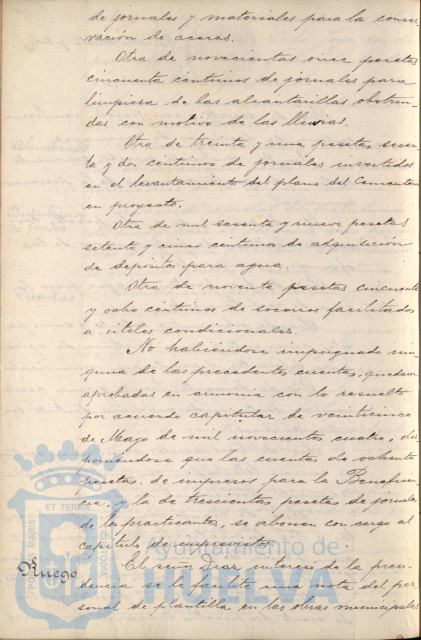 de jornales y materiales para la conser-
vación de aceras.
Otra de novecientas once pesetas
cincuenta centimos de jornales para
limpieza de las alcantarillas obstrui-
das con motivo de las lluvias.
Otra de treinta y una pesetas sesen
ta y dos centimos de jornales invertidos
en el levantamiento del plano del Cementerio
en proyecto.
Otra de mil sesenta y nueve pesetas
setenta y cinco centimos de adquisicion
de depositos para agua.
Otra de noventa pesetas cincuenta
y ocho centimos de socorros facilitados
a utiles condicionales.
No habiendose impugnado nin
guna de las precedentes cuentas, quedaron
aprobadas en armonia con lo resuelto
por acuerdo capitular de veinticinco
de Mayo de mil novecientos cuatro, dis
poniendose que las cuentas de ochenta
pesetas de impresos para la Beneficen
cia, y la de trescientas pesetas de jornales
de los practicantes, se abonen con cargo al
capitulo de imprevistos.
Ruego
El señor Diaz interesó de la presi
dencia se le facilite una nota del per
sonal de plantilla en las obras municipales
Ayuntamiento de
HUELVA
ET TERRÆ
PORTUS MARIS
CUSTODIA